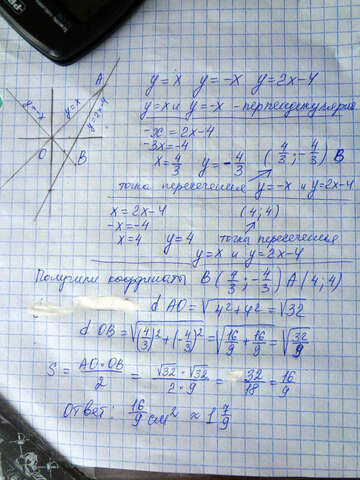 A
y=-x
y=x
y=2x-4
O
B
y=x y=-x y=2x-4
y=x и y=-x - перпендикулярны
-x = 2x-4
-3x=-4
x=4/3 y=-4/3 (4/3; -4/3) B
точка пересечения y=-x и y=2x-4
x = 2x-4 (4;4)
-x=-4 точка пересечения
x=4 y=4 y=x и y=2x-4
Получили координаты B(4/3; -4/3) A(4;4)
d AO = √4²+4² = √32
d OB = √(4/3)²+(-4/3)² = √16/9 + 16/9 = √32/9
S = AO·OB/2 = √32·√32/2·9 = 32/18 = 16/9
Ответ: 16/9 см² ≈ 1 7/9